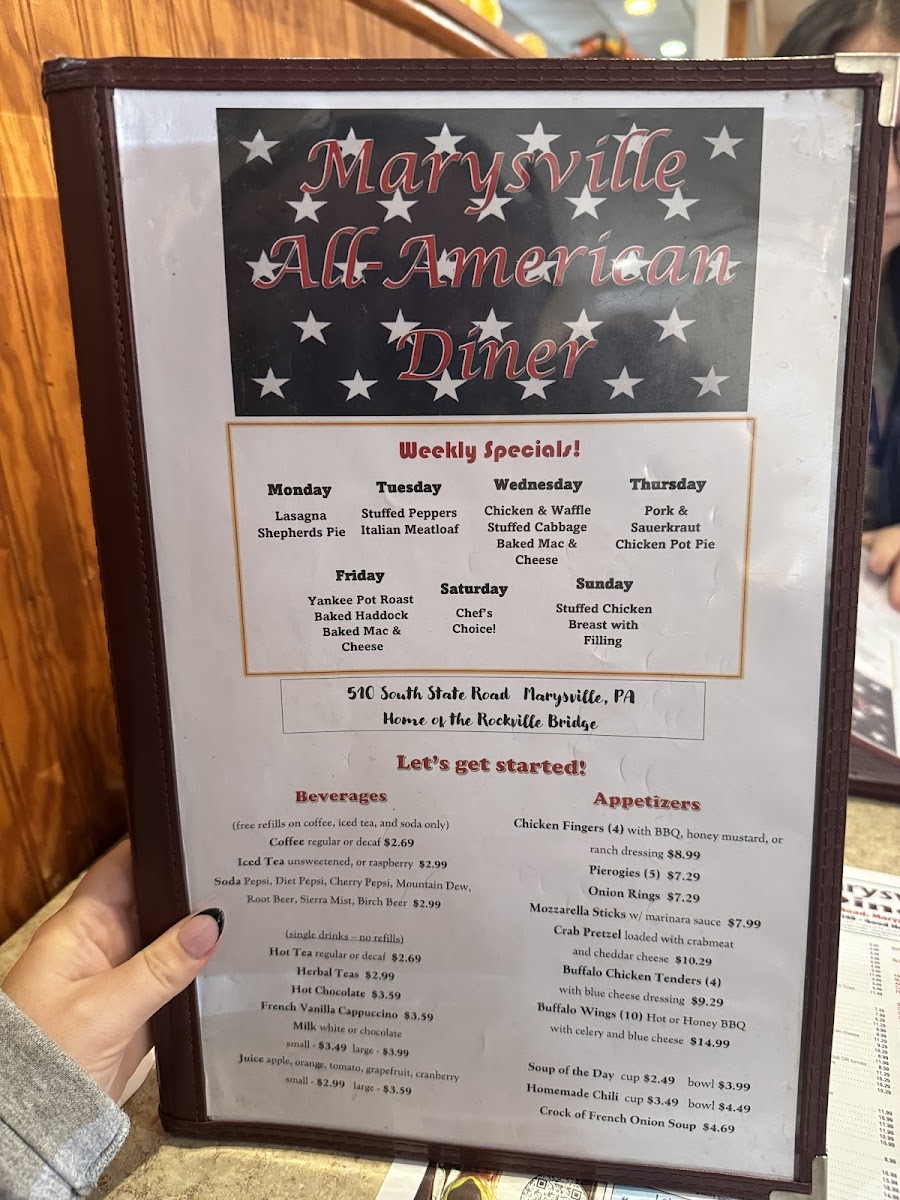 Marysville
All-American
Diner
Weekly Specials!
Monday
Lasagna
Shepherds Pie
Tuesday
Stuffed Peppers
Italian Meatloaf
Wednesday
Chicken & Waffle
Stuffed Cabbage
Baked Mac &
Cheese
Thursday
Pork &
Sauerkraut
Chicken Pot Pie
Friday
Yankee Pot Roast
Baked Haddock
Baked Mac &
Cheese
Saturday
Chef's
Choice!
Sunday
Stuffed Chicken
Breast with
Filling
510 South State Road Marysville, PA
Home of the Rockville Bridge
Let's get started!
Beverages
(free refills on coffee, iced tea, and soda only)
Coffee regular or decaf $2.69
Iced Tea unsweetened, or raspberry $2.99
Soda Pepsi, Diet Pepsi, Cherry Pepsi, Mountain Dew,
Root Beer, Sierra Mist, Birch Beer $2.99
(single drinks – no refills)
Hot Tea regular or decaf $2.69
Herbal Teas $2.99
Hot Chocolate $3.59
French Vanilla Cappuccino $3.59
Milk white or chocolate
small - $3.49 large - $3.99
Juice apple, orange, tomato, grapefruit, cranberry
small - $2.99 large - $3.59
Appetizers
Chicken Fingers (4) with BBQ, honey mustard, or
ranch dressing $8.99
Pierogies (5) $7.29
Onion Rings $7.29
Mozzarella Sticks w/ marinara sauce $7.99
Crab Pretzel loaded with crabmeat
and cheddar cheese $10.29
Buffalo Chicken Tenders (4)
with blue cheese dressing $9.29
Buffalo Wings (10) Hot or Honey BBQ
with celery and blue cheese $14.99
Soup of the Day cup $2.49 bowl $3.99
Homemade Chili cup $3.49 bowl $4.49
Crock of French Onion Soup $4.69